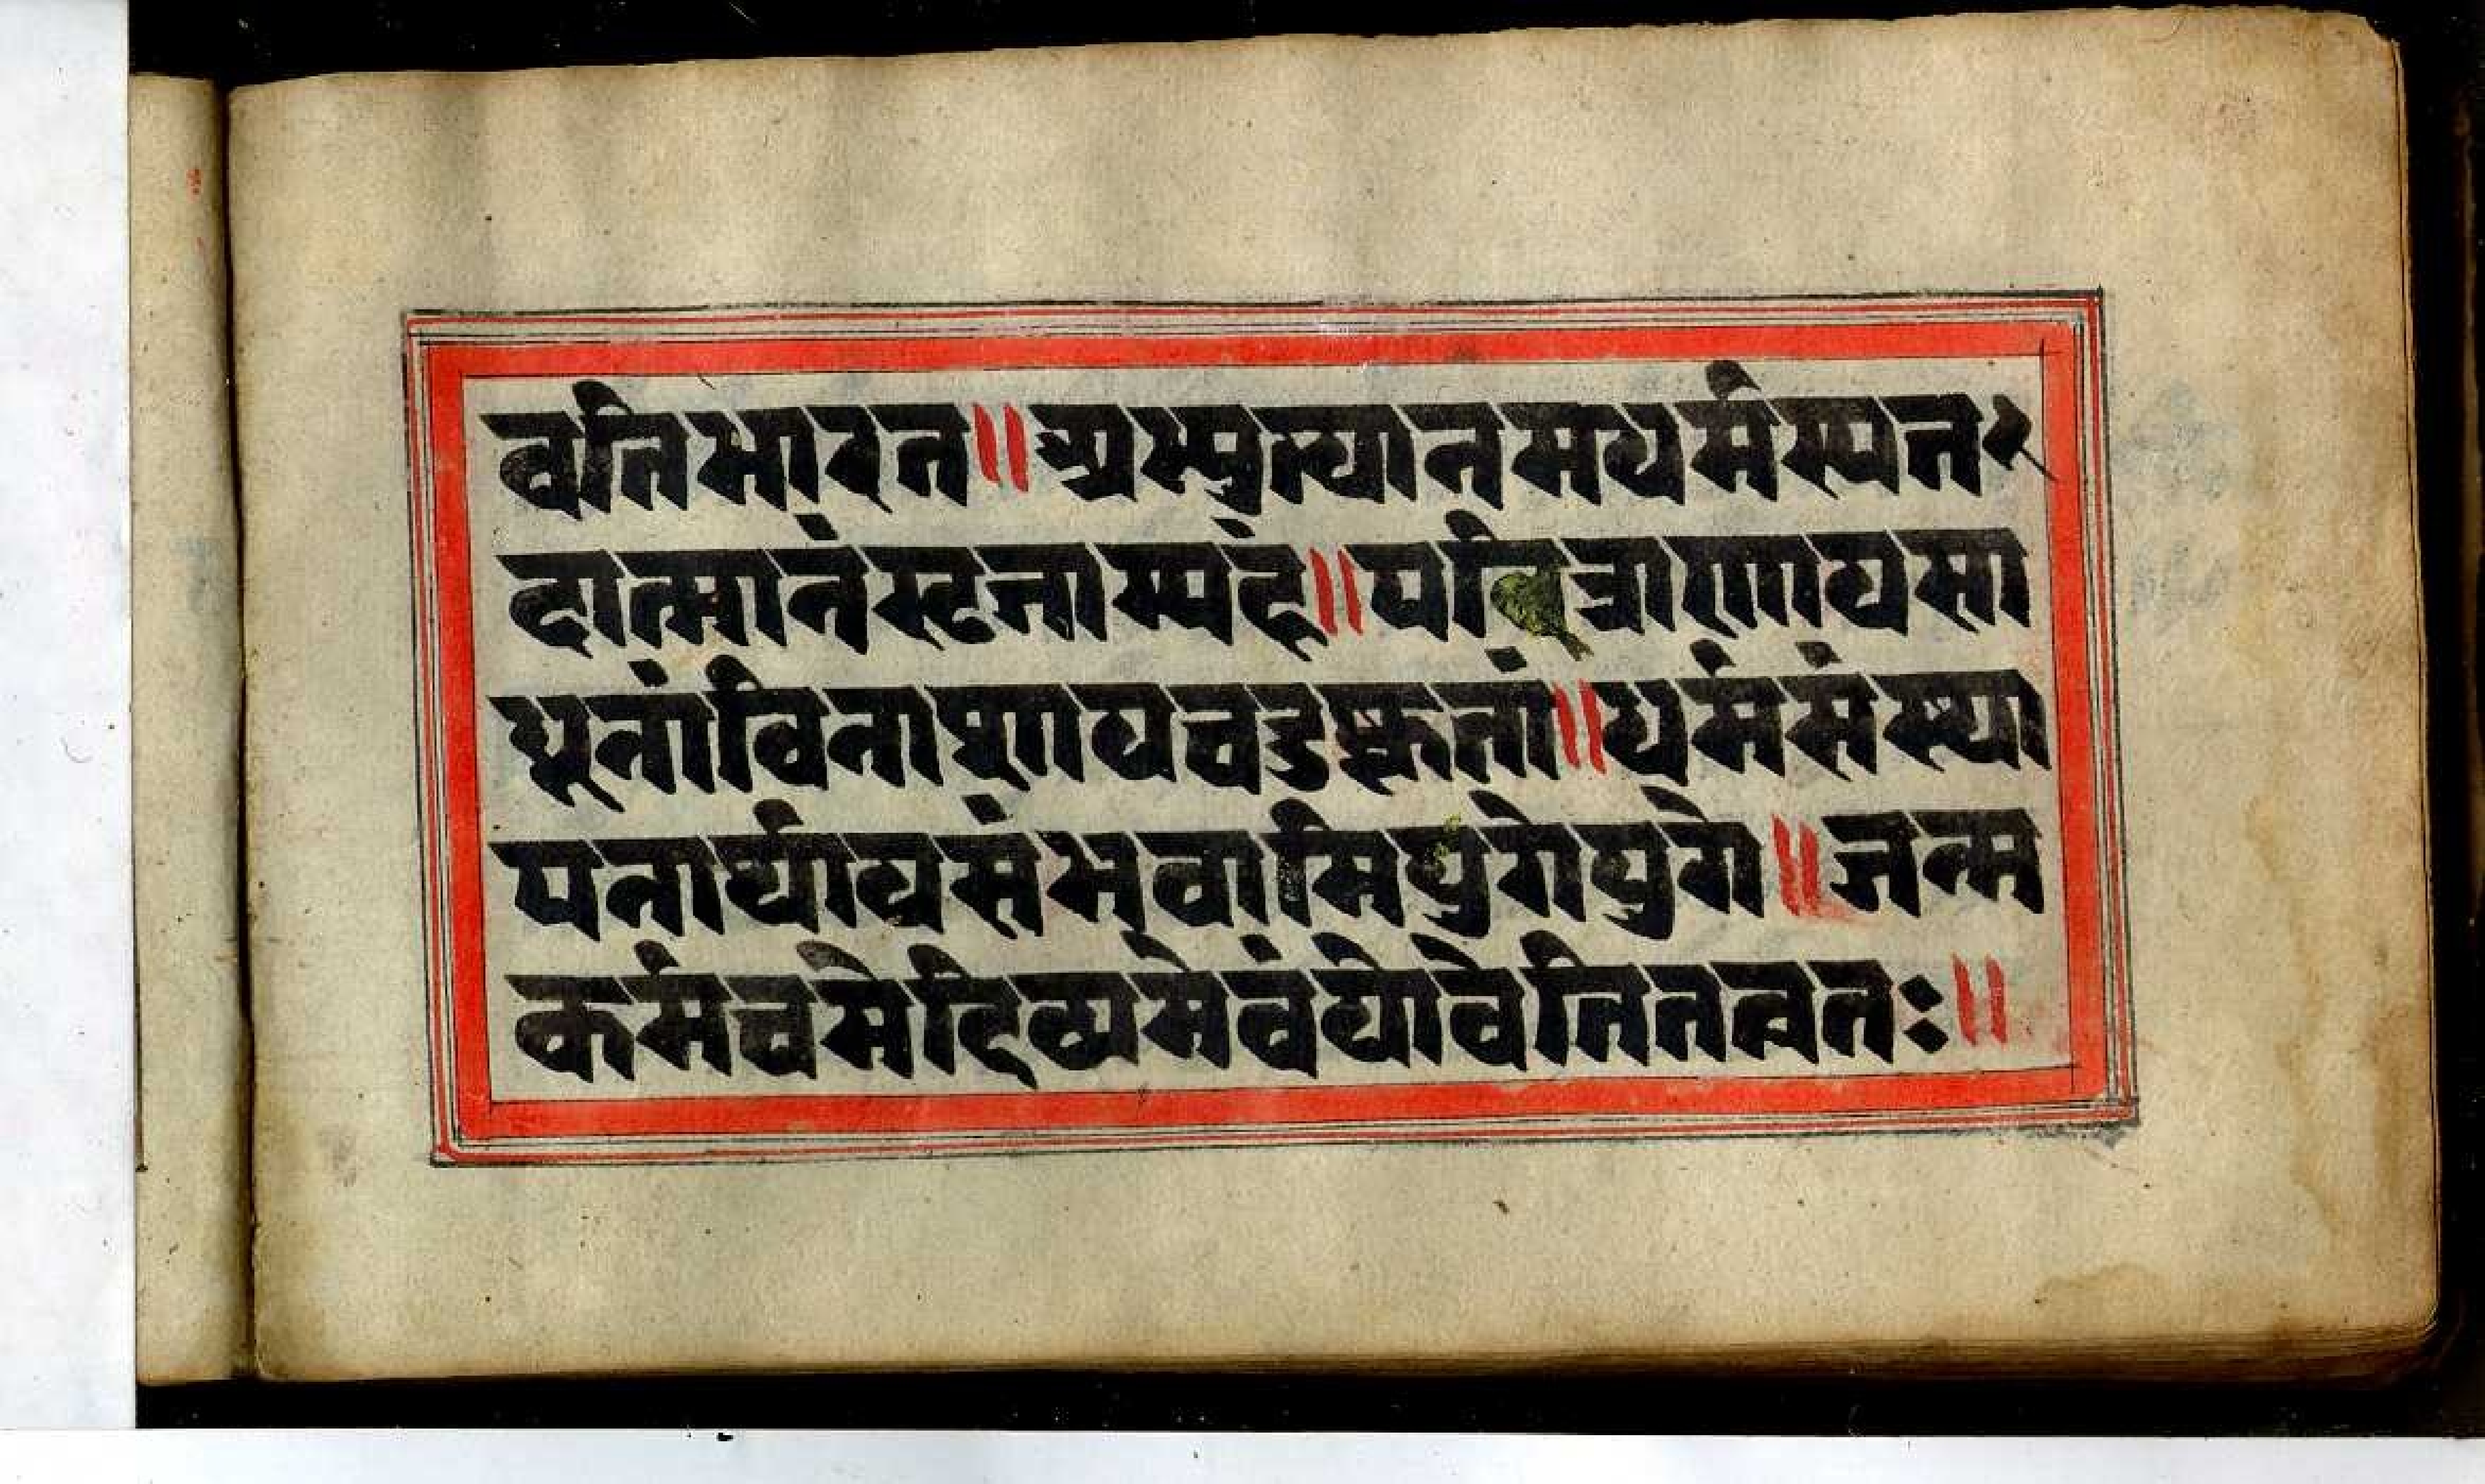 वतिभारत॥अभ्युत्थानमधर्मस्यत
दात्मानंसृजाम्यहं॥परित्राणायसा
धूनांविनाशायचदुष्कृतां॥धर्मसंस्था
पनार्थायसंभवामियुगेयुगे॥जन्म
कर्मचमेदिव्यमेवंयोवेत्तितत्वतः॥